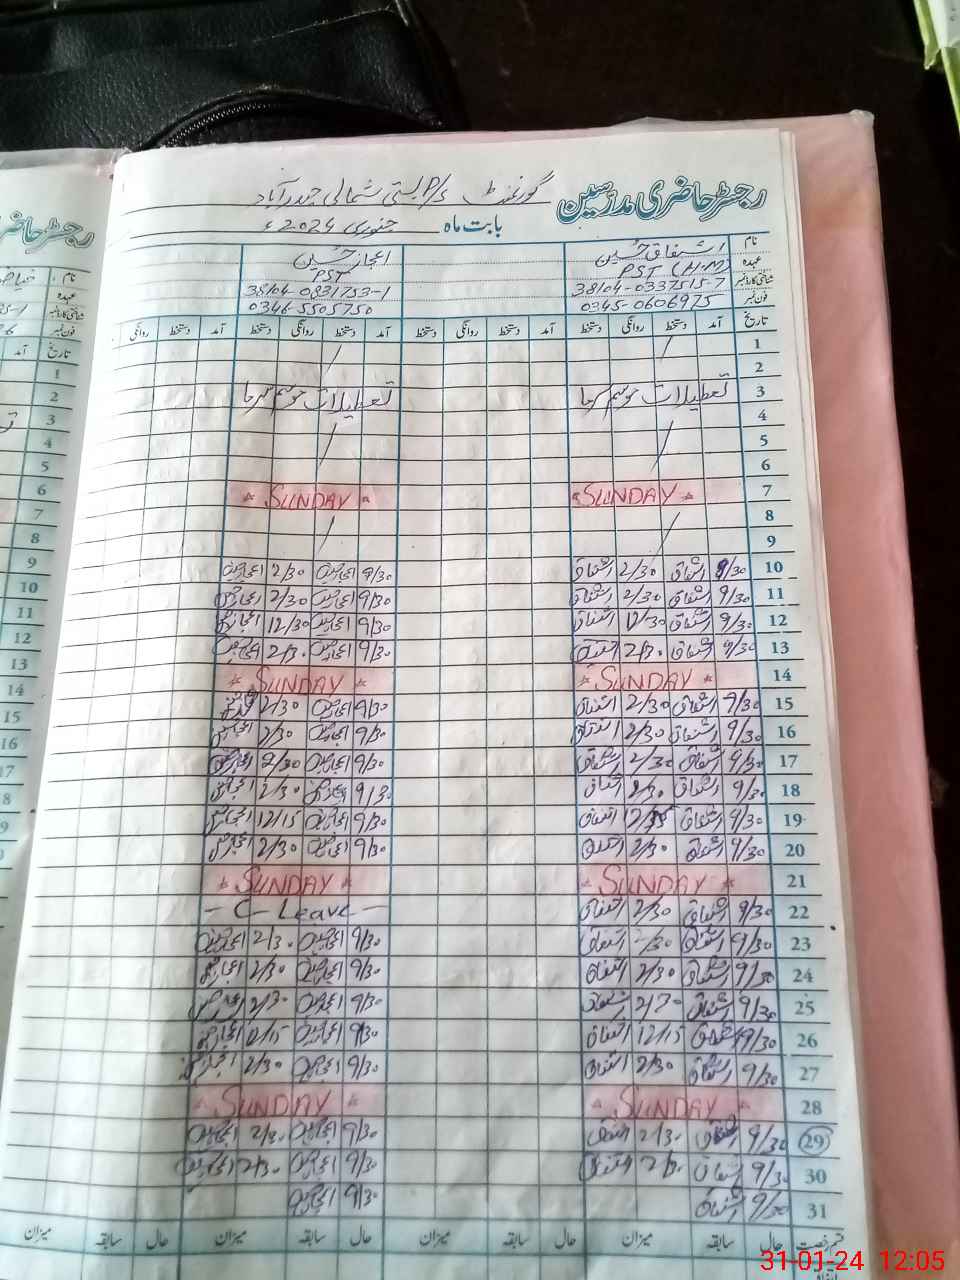 رجسٹر حاضری مدرسین گورنمنٹ P/S بستی شمالی حیدرآباد
بابت ماہ جنوری 2024ء
نام اشفاق حسین اعجاز حسین
عہدہ PST (H.M) PST
شناختی کارڈ نمبر 38104-0337515-7 38104-0831753-1
فون نمبر 0345-0606975 0346-5505750
تاریخ آمد دستخط روانگی دستخط آمد دستخط روانگی دستخط آمد دستخط روانگی دستخط آمد دستخط روانگی
1
2
3 تعطیلات موسم سرما تعطیلات موسم سرما
4
5
6
7 SUNDAY SUNDAY
8
9
10 9/30 اشفاق 2/30 اشفاق 9/30 اعجاز حسین 2/30 اعجاز حسین
11 9/30 اشفاق 2/30 اشفاق 9/30 اعجاز حسین 2/30 اعجاز حسین
12 9/30 اشفاق 12/30 اشفاق 9/30 اعجاز حسین 12/30 اعجاز حسین
13 9/30 اشفاق 2/30 اشفاق 9/30 اعجاز حسین 2/30 اعجاز حسین
14 SUNDAY SUNDAY
15 9/30 اشفاق 2/30 اشفاق 9/30 اعجاز حسین 2/30
16 9/30 اشفاق 2/30 اشفاق 9/30 اعجاز حسین 2/30 اعجاز حسین
17 9/30 اشفاق 2/30 اشفاق 9/30 اعجاز حسین 2/30 اعجاز حسین
18 9/30 اشفاق 2/30 اشفاق 9/30 اعجاز حسین 2/30 اعجاز حسین
19 9/30 اشفاق اشفاق 9/30 اعجاز حسین 12/15 اعجاز حسین
20 9/30 اشفاق 2/30 اشفاق 9/30 اعجاز حسین 2/30 اعجاز حسین
21 SUNDAY SUNDAY
22 9/30 اشفاق 2/30 اشفاق - C - Leave -
23 9/30 اشفاق 2/30 اشفاق 9/30 اعجاز حسین 2/30 اعجاز حسین
24 9/30 اشفاق 2/30 اشفاق 9/30 اعجاز حسین 2/30 اعجاز حسین
25 9/30 اشفاق 2/30 اشفاق 9/30 اعجاز حسین 2/30 اعجاز حسین
26 9/30 اشفاق 12/15 اشفاق 9/30 اعجاز حسین 12/15 اعجاز حسین
27 9/30 اشفاق 2/30 اشفاق 9/30 اعجاز حسین 2/30 اعجاز حسین
28 SUNDAY SUNDAY
29 9/30 اشفاق 2/30 9/30 اعجاز حسین 2/30 اعجاز حسین
30 9/30 اشفاق 2/30 9/30 اعجاز حسین 2/30 اعجاز حسین
31 9/30 اشفاق 9/30 اعجاز حسین
قسم رخصت حال سابقہ میزان حال سابقہ میزان حال سابقہ میزان حال سابقہ میزان
31-01-24 12:05